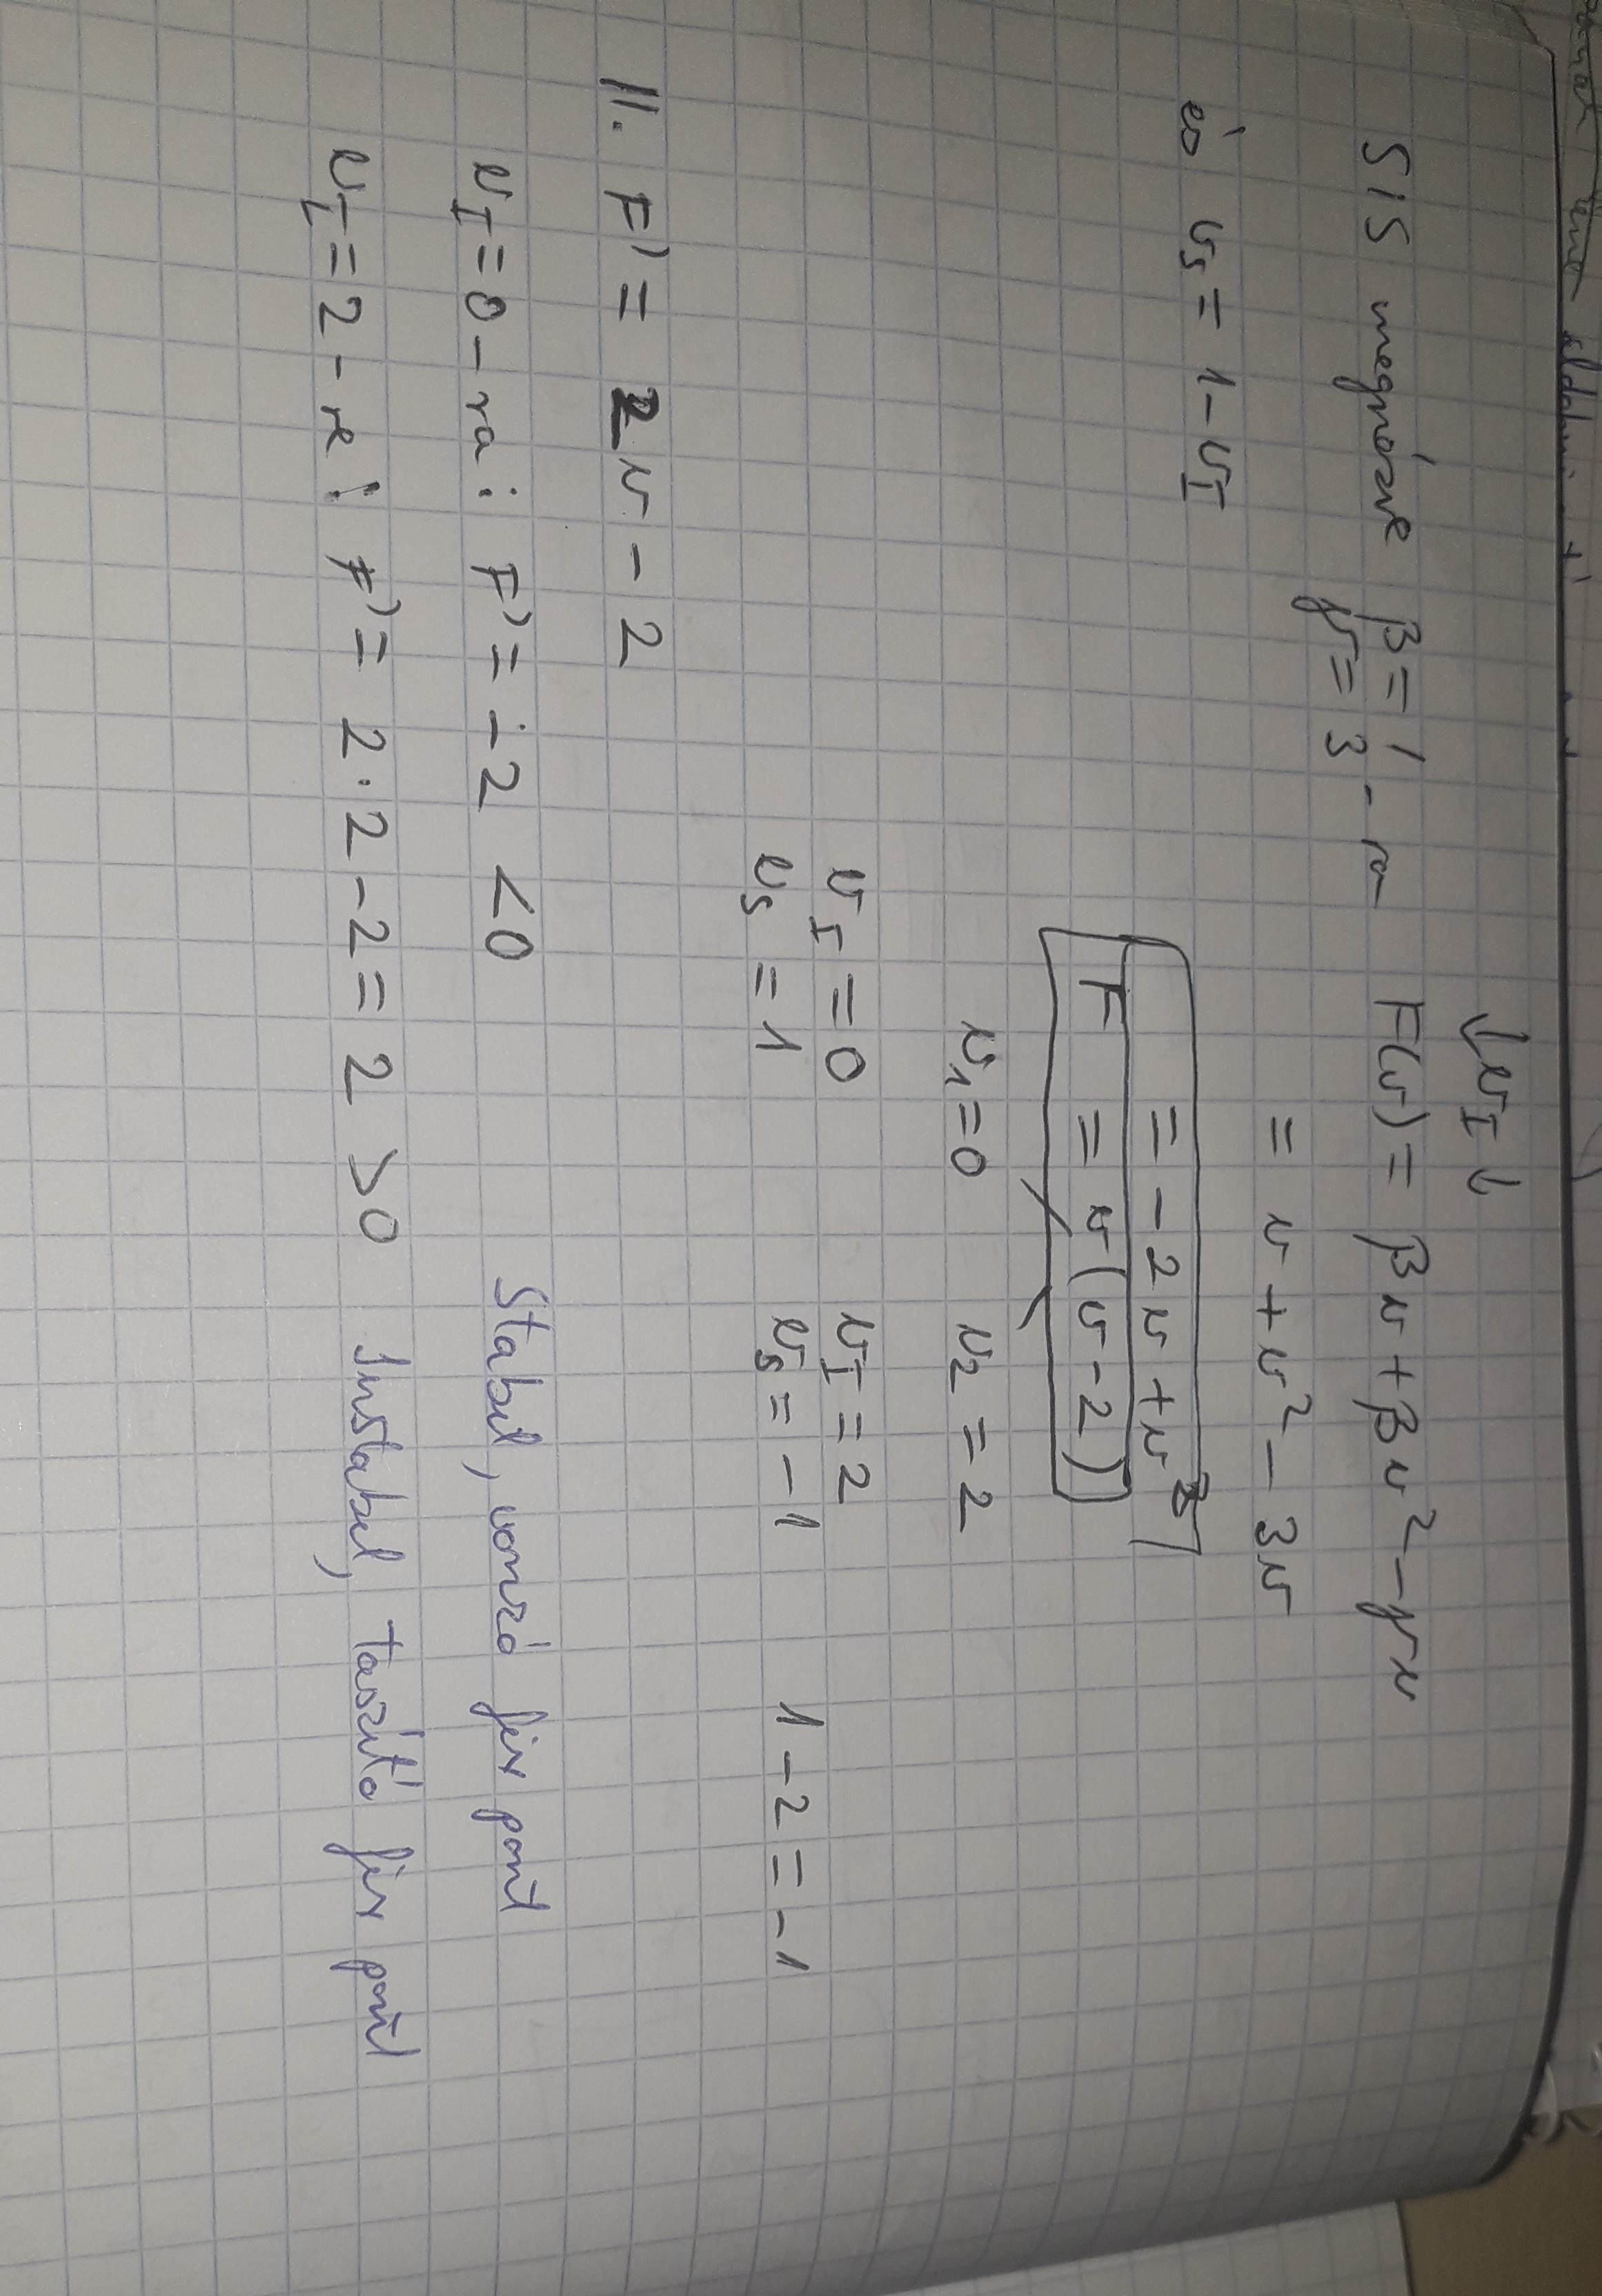 ↓ v_I ↓
SIS megnézve β = 1
γ = 3 - ra
F(v) = βv + βv² - γv
= v + v² - 3v
és v_S = 1 - v_I
= -2v + v²
F = v(v-2)
v₁ = 0 v₂ = 2
v_I = 0 v_I = 2
v_S = 1 v_S = -1 1 - 2 = -1
II. F' = 2v - 2
v_I = 0 - ra: F' = -2 < 0 Stabil, vonzó fix pont
v_I = 2 - re: F' = 2·2 - 2 = 2 > 0 Instabil, taszító fix pont